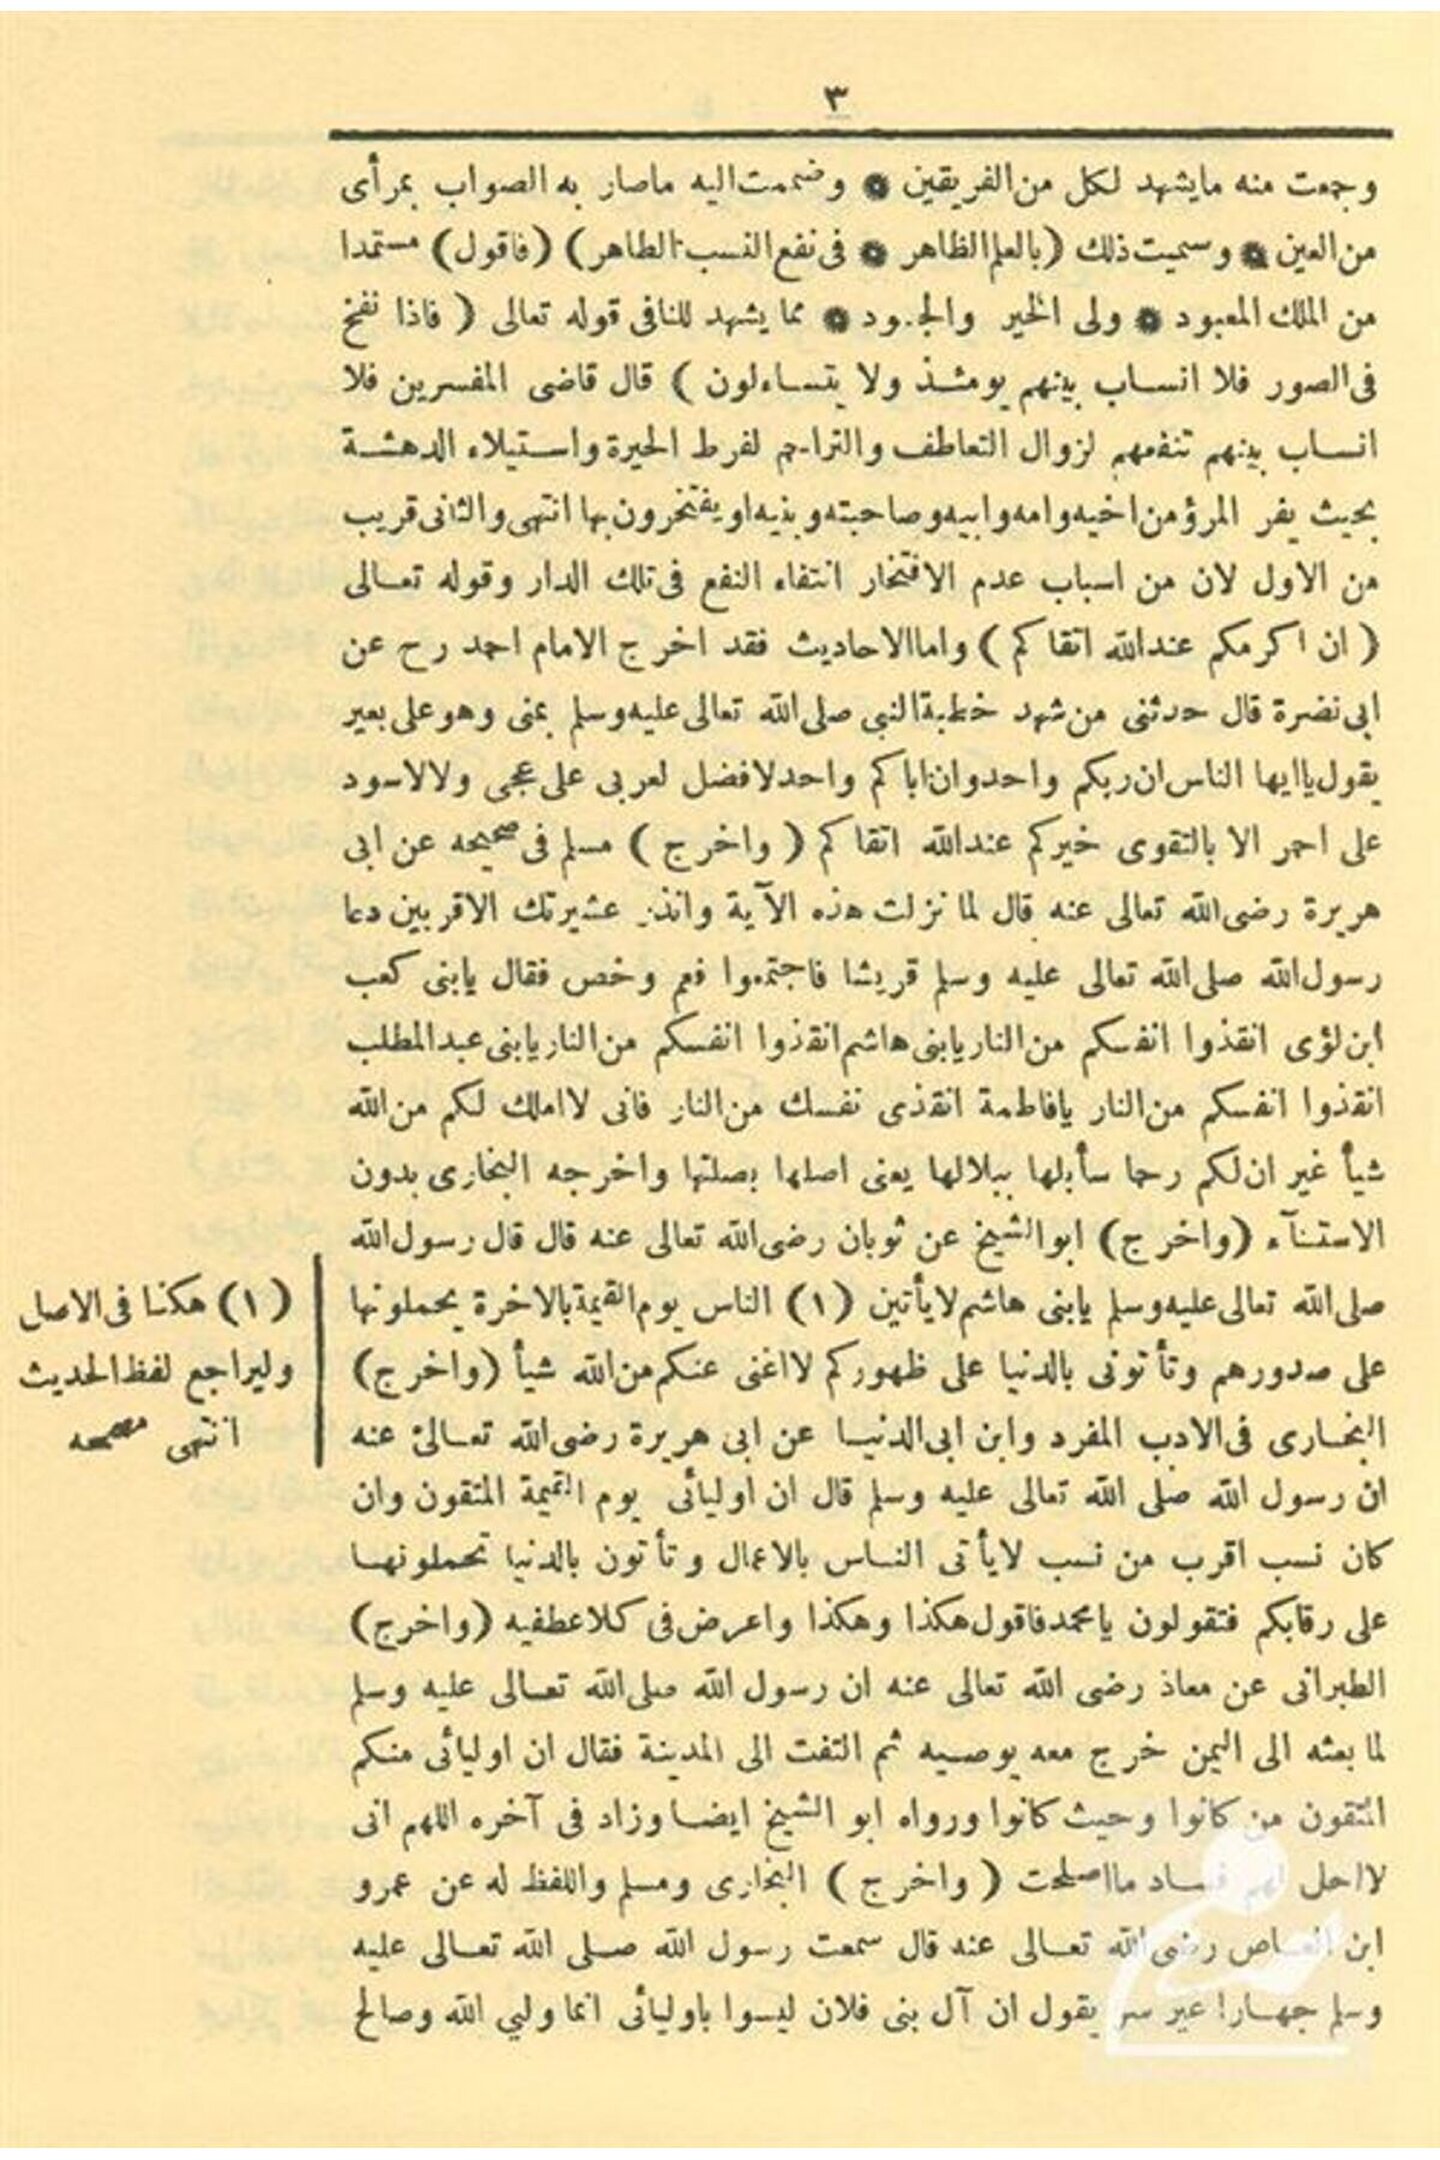 ٣
وجمعت منه مايشهد لكل من الفريقين * وضممت اليه ماصار به الصواب بمرأى
من العين * وسميت ذلك (بالعلم الظاهر * فى نفع النسب الطاهر) (فاقول) مستمدا
من الملك المعبود * ولى الخير والجود * مما يشهد للنافى قوله تعالى ( فاذا نفخ
فى الصور فلا انساب بينهم يومئذ ولا يتساءلون ) قال قاضى المفسرين فلا
انساب بينهم تنفعهم لزوال التعاطف والتراحم لفرط الحيرة واستيلاء الدهشة
بحيث يفر المرؤ من اخيه وامه وابيه وصاحبته وبنيه او يفتخرون بها انتهى والثانى قريب
من الاول لان من اسباب عدم الافتخار انتفاء النفع فى تلك الدار وقوله تعالى
( ان اكرمكم عند الله اتقاكم ) واما الاحاديث فقد اخرج الامام احمد رح عن
ابى نضرة قال حدثنى من شهد خطبة النبى صلى الله تعالى عليه وسلم بمنى وهو على بعير
يقول ياايها الناس ان ربكم واحد وان اباكم واحد لافضل لعربى على عجمى ولا لاسود
على احمر الا بالتقوى خيركم عند الله اتقاكم ( واخرج ) مسلم فى صحيحه عن ابى
هريرة رضى الله تعالى عنه قال لما نزلت هذه الآية وانذر عشيرتك الاقربين دعا
رسول الله صلى الله تعالى عليه وسلم قريشا فاجتمعوا فعم وخص فقال يابنى كعب
ابن لؤى انقذوا انفسكم من النار يابنى هاشم انقذوا انفسكم من النار يابنى عبد المطلب
انقذوا انفسكم من النار يافاطمة انقذى نفسك من النار فانى لااملك لكم من الله
شيأ غير ان لكم رحما سأبلها ببلالها يعنى اصلها بصلتها واخرجه البخارى بدون
الاستنآء (واخرج) ابو الشيخ عن ثوبان رضى الله تعالى عنه قال قال رسول الله
صلى الله تعالى عليه وسلم يابنى هاشم لايأتين (١) الناس يوم القيمة بالاخرة يحملونها
على صدورهم وتأتونى بالدنيا على ظهوركم لااغنى عنكم من الله شيأ (واخرج)
البخارى فى الادب المفرد وابن ابى الدنيا عن ابى هريرة رضى الله تعالى عنه
ان رسول الله صلى الله تعالى عليه وسلم قال ان اوليائى يوم القيمة المتقون وان
كان نسب اقرب من نسب لايأتى الناس بالاعمال وتأتون بالدنيا تحملونها
على رقابكم فتقولون يامحمد فاقول هكذا وهكذا واعرض فى كلا عطفيه (واخرج)
الطبرانى عن معاذ رضى الله تعالى عنه ان رسول الله صلى الله تعالى عليه وسلم
لما بعثه الى اليمن خرج معه يوصيه ثم التفت الى المدينة فقال ان اوليائى منكم
المتقون من كانوا وحيث كانوا ورواه ابو الشيخ ايضا وزاد فى آخره اللهم انى
لااحل لهم فساد مااصلحت ( واخرج ) البخارى ومسلم واللفظ له عن عمرو
ابن العاص رضى الله تعالى عنه قال سمعت رسول الله صلى الله تعالى عليه
وسلم جهارا غير سر يقول ان آل بنى فلان ليسوا باوليائى انما وليي الله وصالح
(١) هكذا فى الاصل
وليراجع لفظ الحديث
انتهى مصححه